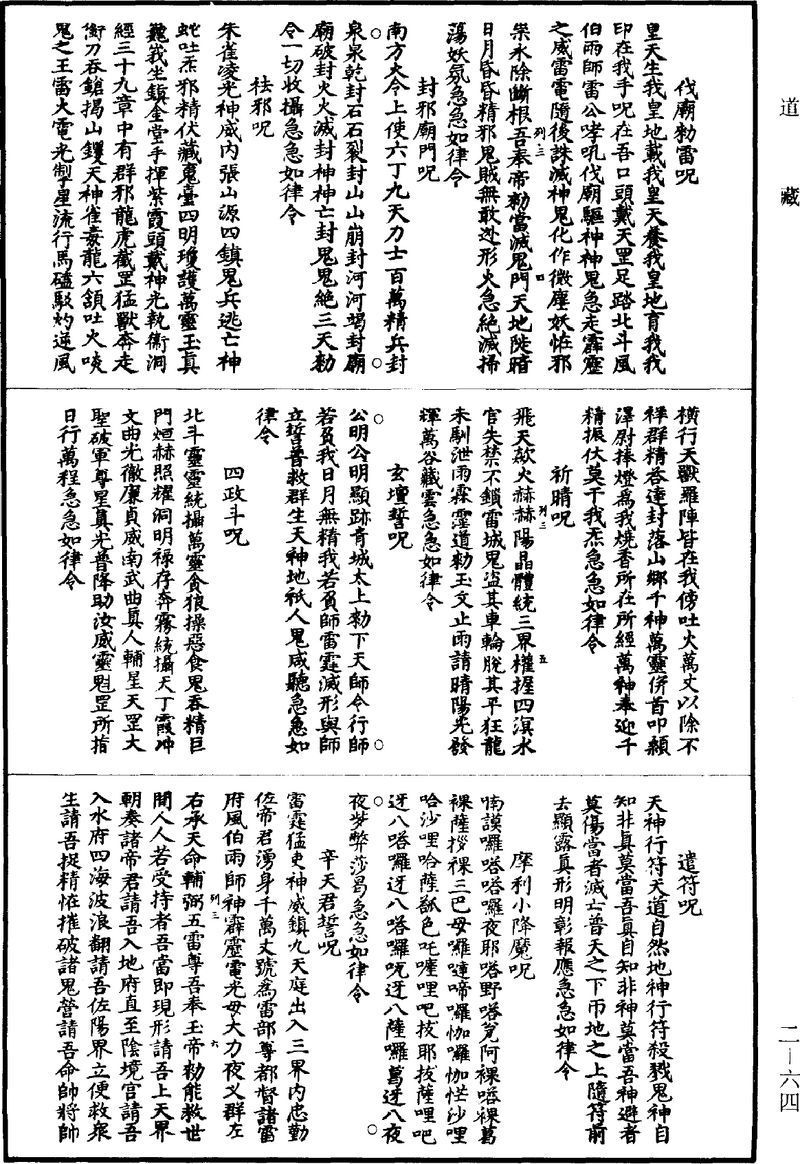 道藏
伐廟勑雷呪
皇天生我皇地載我皇天養我皇地育我我
印在我手呪在吾口頭戴天罡足踏北斗風
伯雨師雷公哮吼伐廟驅神神鬼急走霹靂
之威雷電隨後誅滅神鬼化作微塵妖怪邪
祟永除斷根吾奉帝勑當滅鬼門天地陡暗
日月昏昏精邪鬼賊無敢逃形火急絕滅掃
蕩妖氛急急如律令
封邪廟門呪
南方火令上使六丁九天力士百萬精兵封
泉泉乾封石石裂封山山崩封河河竭封廟
廟破封火火滅封神神亡封鬼鬼絕三天勑
令一切收攝急急如律令
祛邪呪
朱雀凌光神威內張山源四鎮鬼兵逃亡神
蛇吐炁邪精伏藏魔臺四明瓊護萬靈玉真
巍峩坐鎮金堂手揮紫霞頭戴神光執衛洞
經三十九章中有群邪龍虎截罡猛獸奔走
銜刀吞鎗揭山钁天神雀毒龍六頷吐火啖
鬼之王雷火電光掣星流行馬礚駁灼逆風
橫行天獸羅陣皆在我傍吐火萬丈以除不
祥群精吞達封落山鄉千神萬靈併首叩顙
澤尉捧燈爲我燒香所在所經萬神奉迎千
精振伏莫干我炁急急如律令
祈晴呪
飛天歘火赫赫陽晶體統三界權握四溟水
官失禁不鎖雷城鬼盜其車輪脫其平狂龍
未馴泄雨霖霪道勑玉文止雨請晴陽光發
輝萬谷藏雲急急如律令
玄壇誓呪
公明公明顯跡青城太上勑下天師令行師
若負我日月無精我若負師雷霆滅形與師
立誓普救群生天神地祇人鬼咸聽急急如
律令
四政斗呪
北斗靈靈統攝萬靈貪狼操惡食鬼吞精巨
門烜赫照耀洞明祿存奔霧統攝天丁霞冲
文曲光徹廉貞威南武曲真人輔星天罡大
聖破軍尊星真光普降助汝威靈魁罡所指
日行萬程急急如律令
遣符呪
天神行符天道自然地神行符殺戮鬼神自
知非真莫當吾真自知非神莫當吾神避者
莫傷當者滅亡普天之下帀地之上隨符前
去顯露真形明彰報應急急如律令
摩利小降魔呪
喃謨囉嗒嗒囉夜耶嗒野嗒㝹阿裸嗒裸葛
裸薩拶裸三巴母囉噠啼囉怭囉怭芒沙哩
哈沙哩哈薩鬏色吒㗌哩吧拔耶拔薩哩吧
迓八嗒囉迓八嗒囉呪迓八薩囉葛迓八夜
夜娑弊莎曷急急如律令
辛天君誓呪
雷霆猛吏神威鎮九天庭出入三界內忠勤
佐帝君湧身千萬丈號爲雷部尊都督諸雷
府風伯雨師神霹靂電光母大力夜义群左
右承天命輔弼五雷尊吾奉玉帝勑能救世
間人人若受持者吾當即現形請吾上天界
朝奏諸帝君請吾入地府直至陰境宮請吾
入水府四海波浪翻請吾佐陽界立便救衆
生請吾捉精怪摧破諸鬼營請吾命帥將帥
二—六四